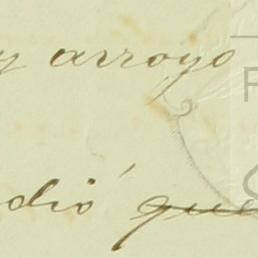 y arroyo
dió que